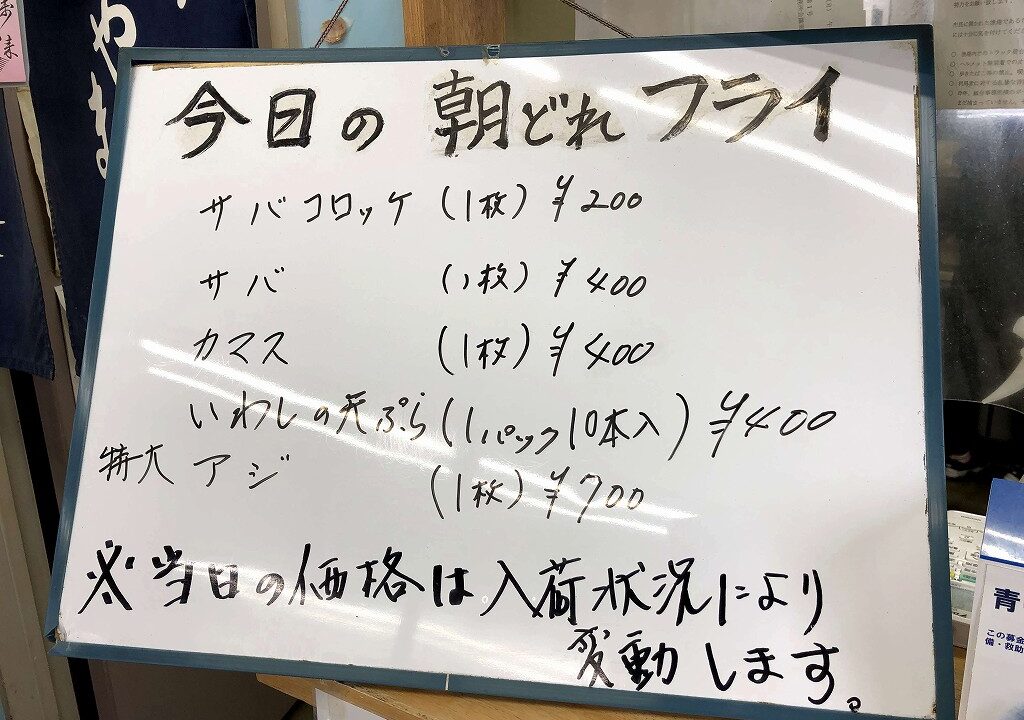 今日の朝どれフライ
サバコロッケ (1枚) ¥200
サバ (1枚) ¥400
カマス (1枚) ¥400
いわしの天ぷら (1パック10本入) ¥400
特大 アジ (1枚) ¥700
※当日の価格は入荷状況により
変動します。
青
この募金
備・救助